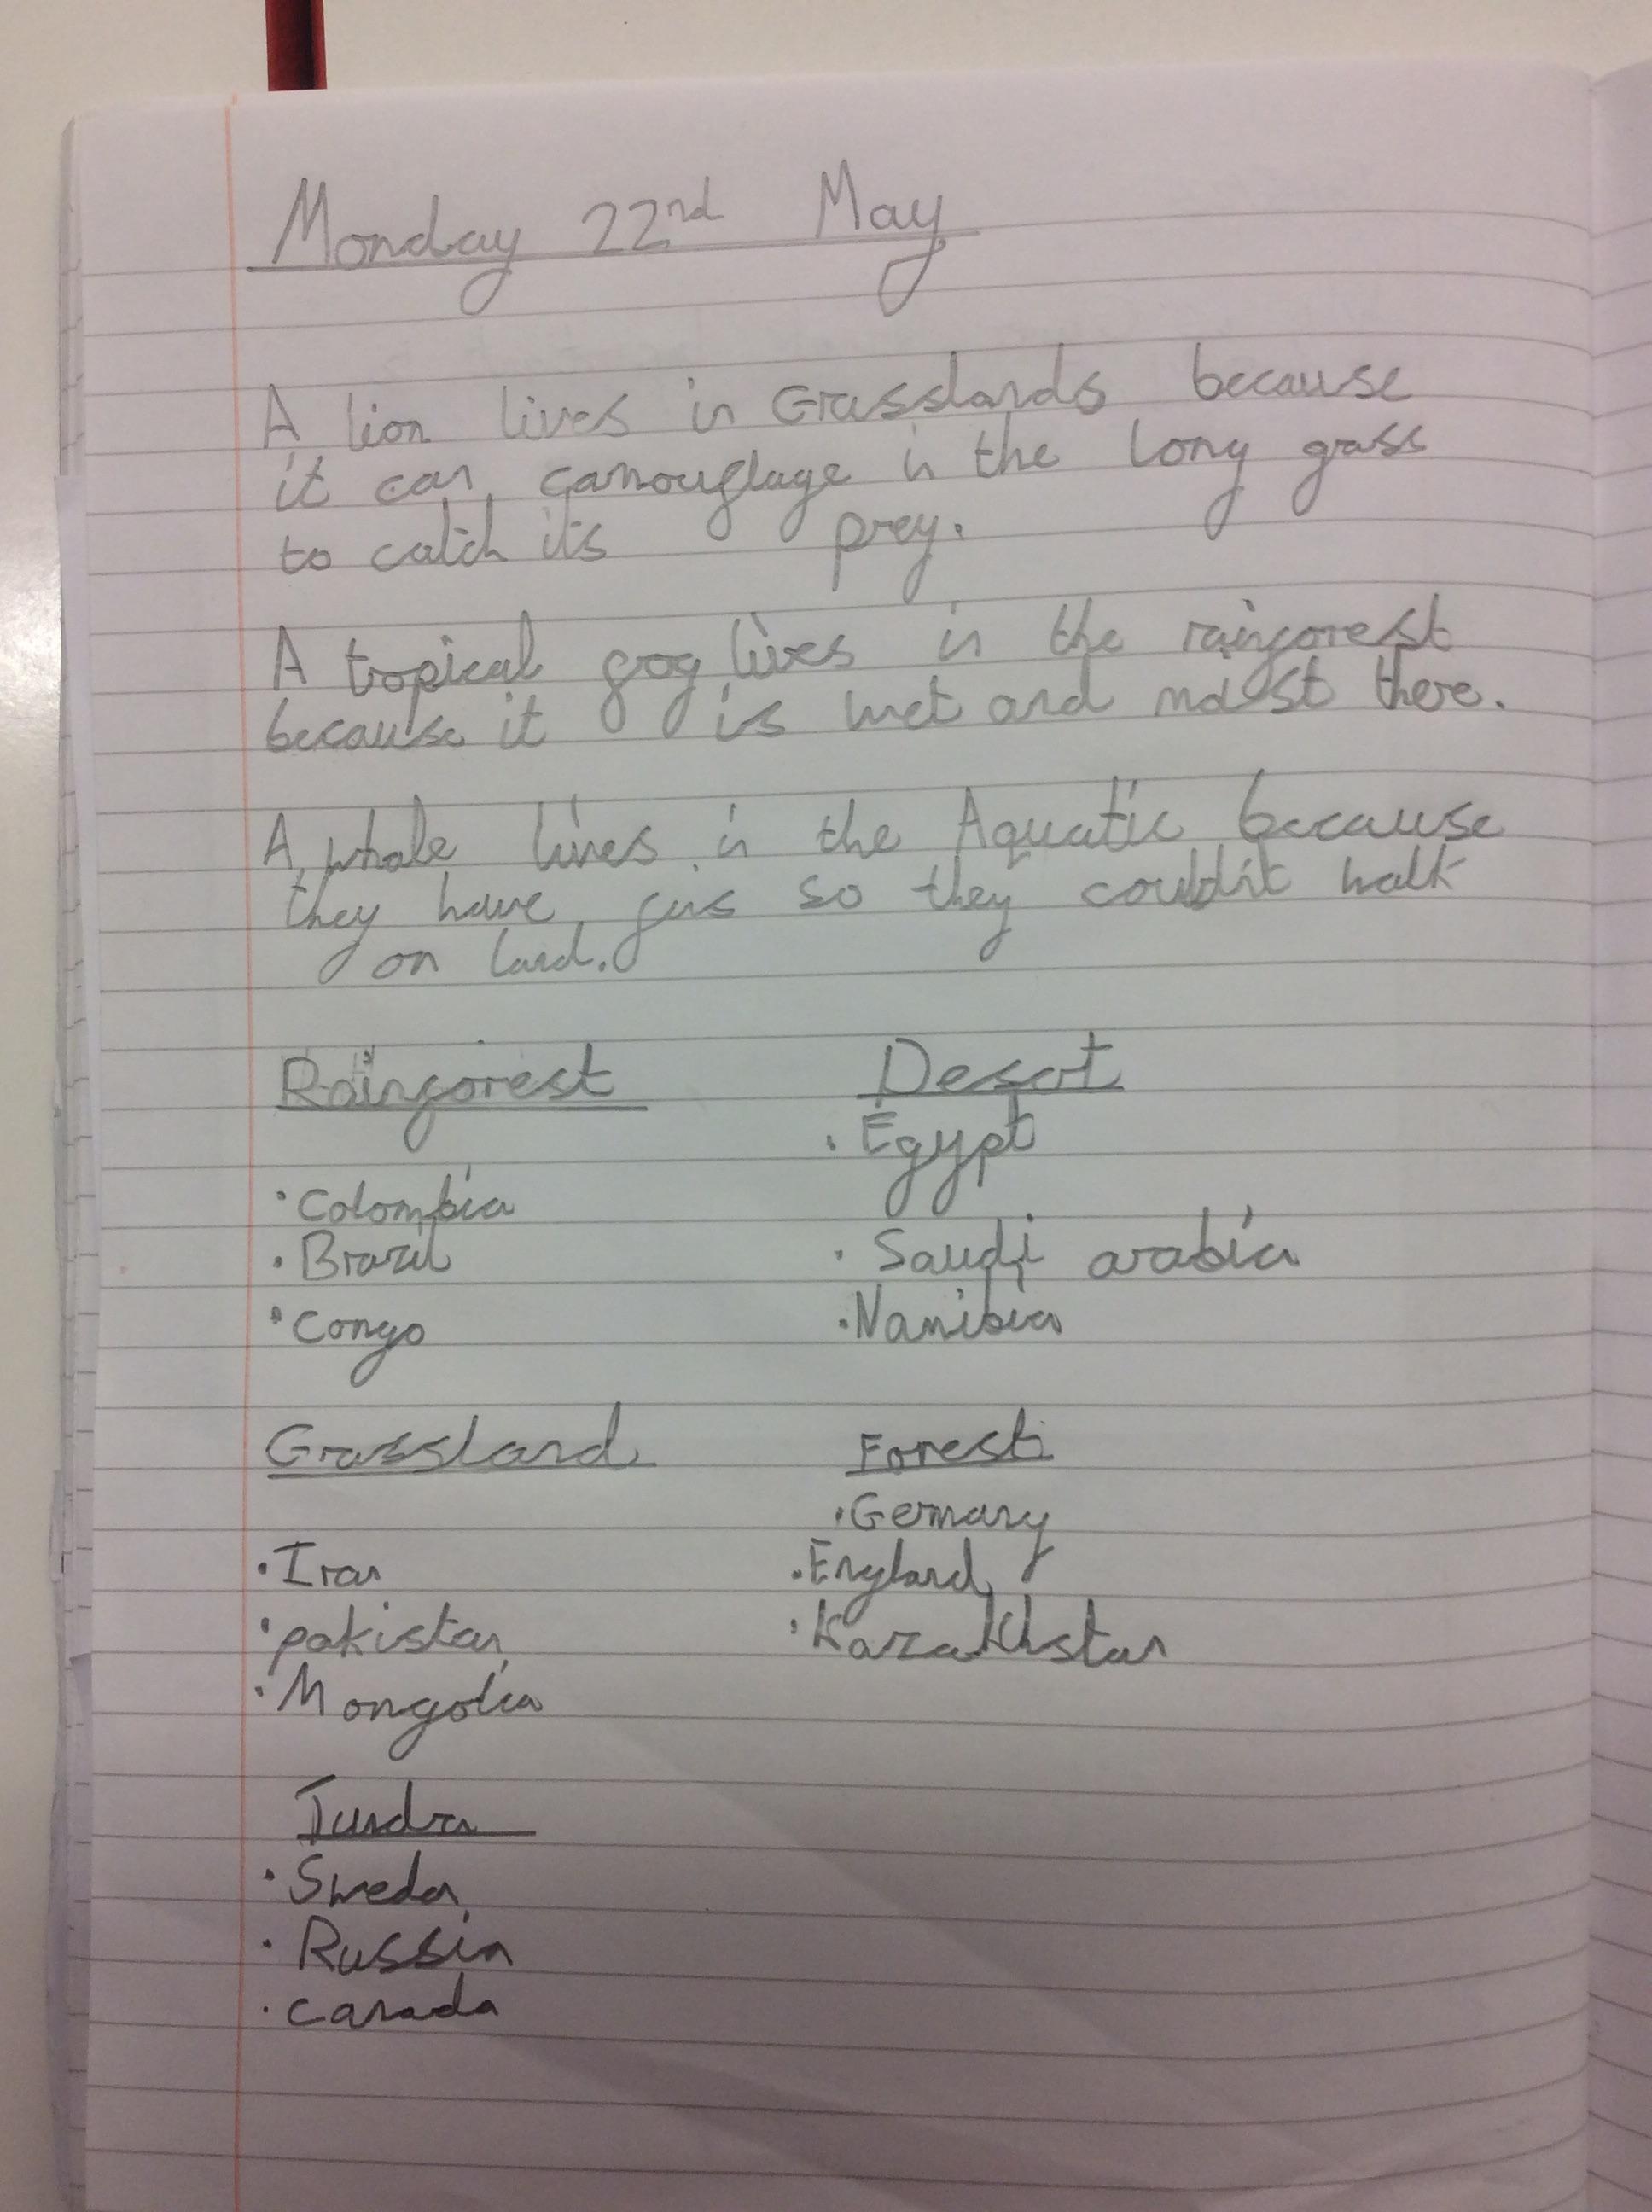 Monday 22nd May
A lion lives in Grasslands because
it can camouflage in the long grass
to catch its prey.
A tropical frog lives in the rainforest
because it is wet and moist there.
A whale lives in the Aquatic because
they have fins so they couldn't walk
on land.
Rainforest
• Colombia
• Brazil
• Congo
Desert
• Egypt
• Saudi arabia
• Namibia
Grassland
• Iran
• pakistan
• Mongolia
Forest
• Germany
• England
• Kazakhstan
Tundra
• Sweden
• Russia
• canada